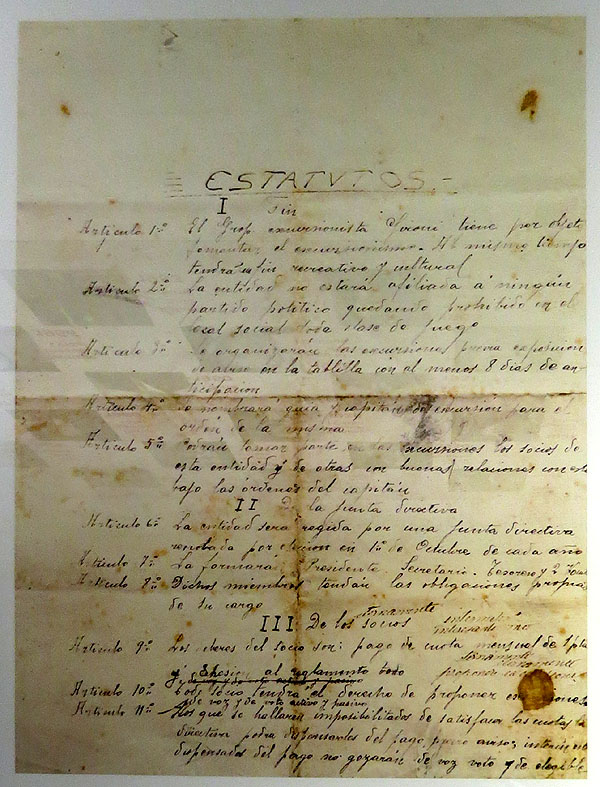 ESTATUTOS.-
I Fin
Artículo 1º El Grop excursionista tiene por objeto
fomentar el excursionismo. Al mismo tiempo
tendrá un fin recreativo y cultural
Artículo 2º La entidad no estará afiliada á ningún
partido político quedando prohibido en el
local social toda clase de juego
Artículo 3º Se organizarán las excursiones previa exposición
de aviso en la tablilla con al menos 8 días de an
ticipación
Artículo 4º Se nombrará guía y capitán de excursión para el
orden de la misma
Artículo 5º Podrán tomar parte en las excursiones los socios de
esta entidad y de otras con buenas relaciones con esta
bajo las órdenes del capitán
II De la junta directiva
Artículo 6º La entidad será regida por una junta directiva
renobada por elección en 1º de Octubre de cada año
Artículo 7º La formará: Presidente Secretario Tesorero y 2
Artículo 8º Dichos miembros tendrán las obligaciones propias
de su cargo
III De los socios
Artículo 9º Los deberes del socio son: pago de cuota mensual de 1 pta
y adhesión al reglamento
Artículo 10º Todo socio tendrá el derecho de proponer
de voz y de voto activo y pasivo
Artículo 11º Los que se hallaren imposibilitados de satisfacer las cuotas la
directiva podrá dispensarles del pago previo aviso
dispensados del pago no gozarán de voz voto y de